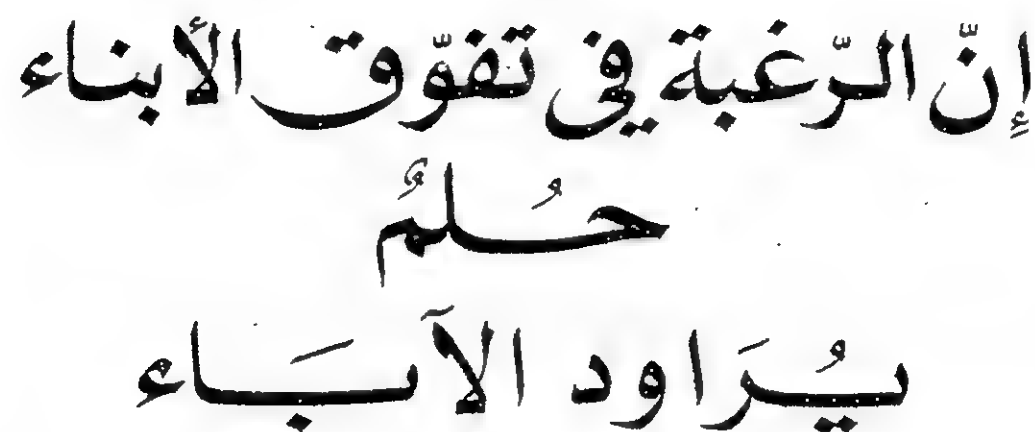 إِنّ الرّغبة في تفوّق الأبناء
حُلمٌ
يُرَاود الآبَاء